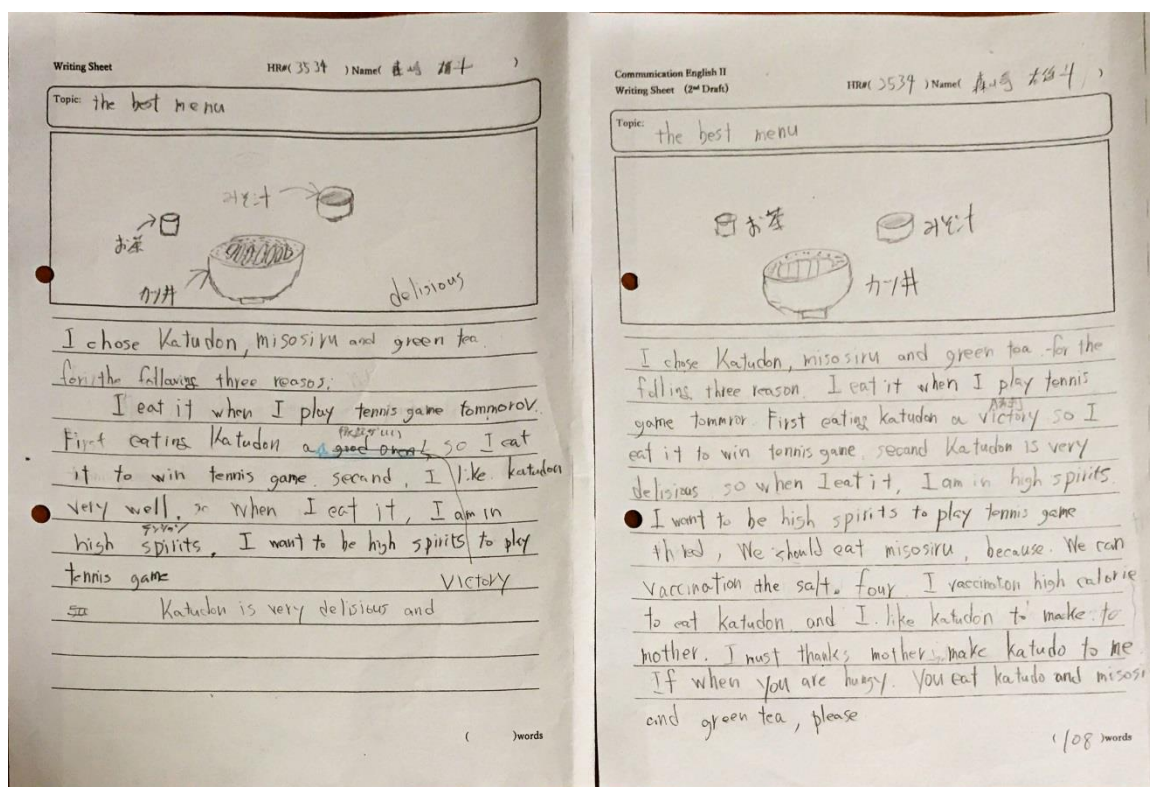 Writing Sheet
HR#( 3534 ) Name( 斗 )
Topic: the best menu
みそ汁
お茶
カツ丼
delisious
I chose Katudon, misosiru and green tea.
for the following three reasos.
I eat it when I play tennis game tommorov.
First eating Katudon a good omen so I eat
it to win tennis game. secand, I like katudon
very well. so when I eat it, I am in
テンション
high spirits. I want to be high spirits to play
tennis game
Victory
Katudon is very delisious and
( )words
Communication English II
Writing Sheet (2nd Draft)
HR#( 3534 ) Name( 斗 )
Topic: the best menu
お茶
みそ汁
カツ丼
I chose Katudon, misosiru and green tea for the
folling three reason I eat it when I play tennis
game tommror First eating katudon a victory so I
eat it to win tennis game. secand Katudon is very
delisious so when I eat it, I am in high spirits.
I want to be high spirits to play tennis game
thred, We should eat misosiru, because. We can
vaccination the salt. four I vaccinaton high calorie
to eat katudon and I like katudon to make to
mother. I must thanks mother make katudo to me
If when you are hungy. You eat katudo and misosi
and green tea, please
( 108 )words